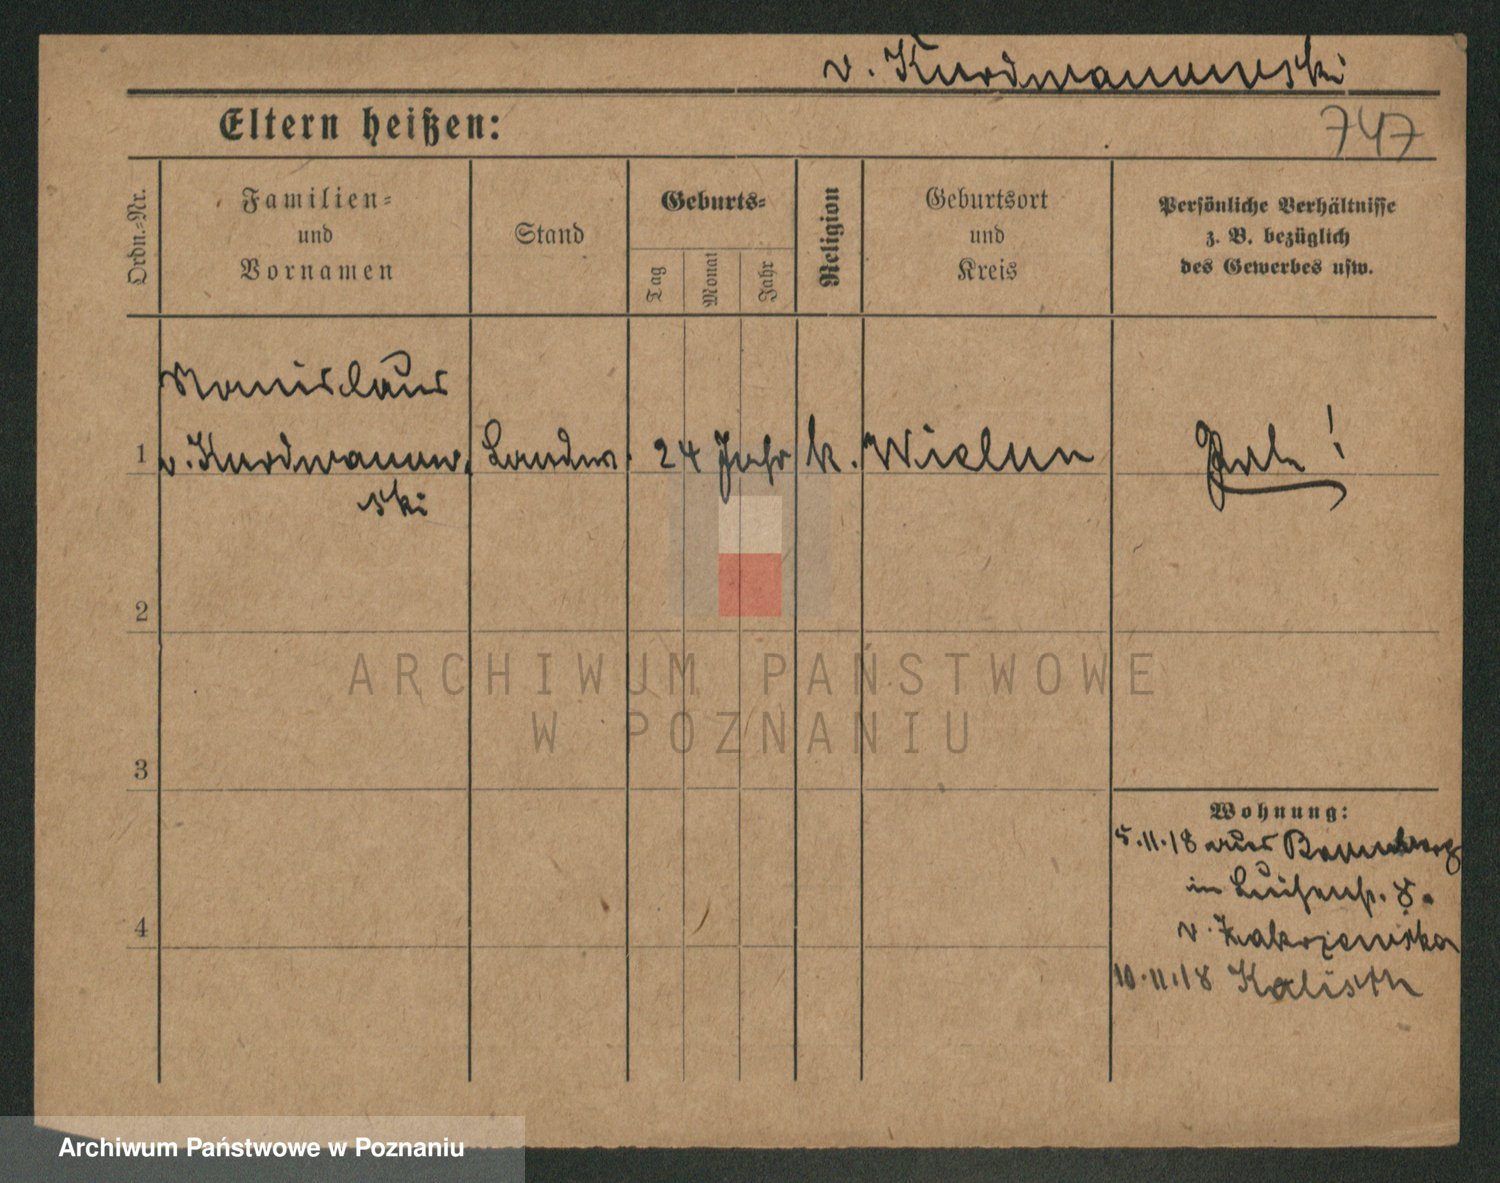 v. Kurdwanowski
Eltern heißen:
747
Ordn.-Nr.
Familien-
und
Vornamen
Stand
Geburts-
Tag
Monat
Jahr
Religion
Geburtsort
und
Kreis
Persönliche Verhältnisse
z. B. bezüglich
des Gewerbes usw.
1
v. Kurdwanow.
ski
Landw.
24 Jahr
k.
Wielun
2
3
4
Wohnung:
5.11.18 aus Bromberg
in Luisenstr. 8.
v. Zakrzewska
10.11.18 Kalisch
ARCHIWUM PAŃSTWOWE
W POZNANIU
Archiwum Państwowe w Poznaniu